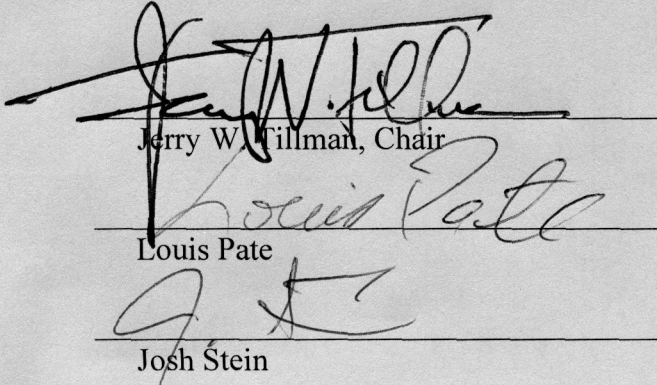 Jerry W. Tillman
Jerry W. Tillman, Chair
Louis Pate
Louis Pate
J. St
Josh Stein